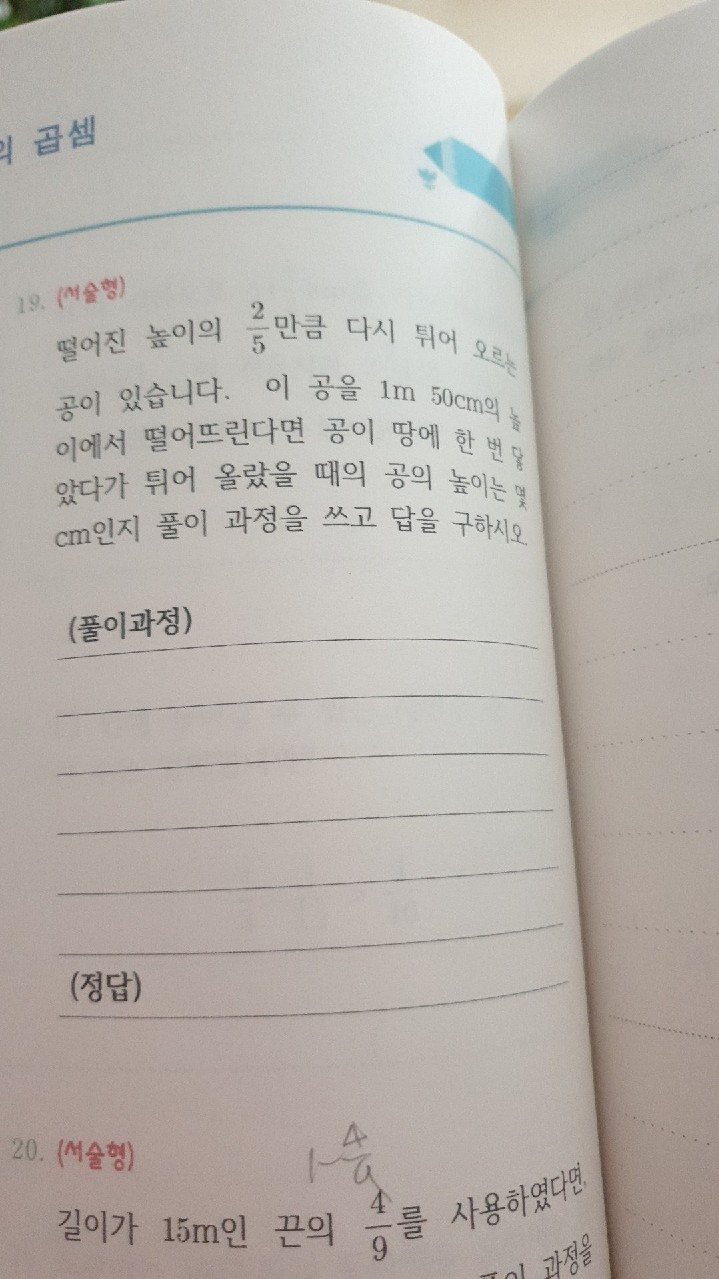 의 곱셈
19. (서술형)
떨어진 높이의 2/5만큼 다시 튀어 오르는
공이 있습니다. 이 공을 1m 50cm의 높
이에서 떨어뜨린다면 공이 땅에 한 번 닿
았다가 튀어 올랐을 때의 공의 높이는 몇
cm인지 풀이 과정을 쓰고 답을 구하시오
(풀이과정)
(정답)
20. (서술형)
1-4/9
길이가 15m인 끈의 4/9를 사용하였다면,
풀이 과정을